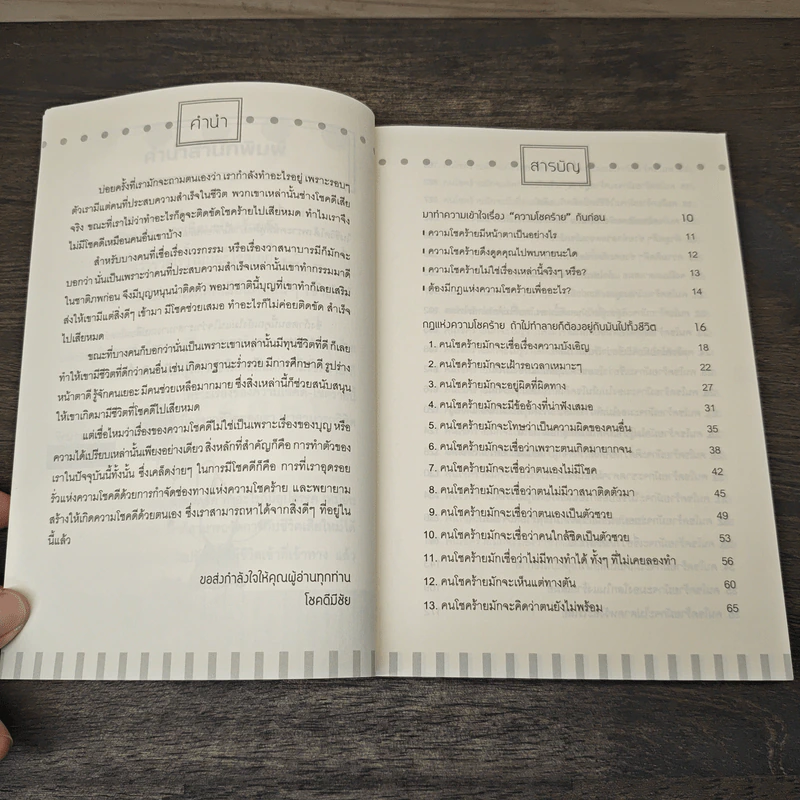 คำนำ
บ่อยครั้งที่เรามักจะถามตนเองว่า เรากำลังทำอะไรอยู่ เพราะรอบๆ
ตัวเรามีแต่คนที่ประสบความสำเร็จในชีวิต พวกเขาเหล่านั้นช่างโชคดีเสีย
จริง ขณะที่เราไม่ว่าทำอะไรก็ดูจะติดขัดโชคร้ายไปเสียหมด ทำไมเราจึง
ไม่มีโชคดีเหมือนคนอื่นเขาบ้าง
สำหรับบางคนที่เชื่อเรื่องเวรกรรม หรือเรื่องวาสนาบารมีก็มักจะ
บอกว่า นั่นเป็นเพราะว่าคนที่ประสบความสำเร็จเหล่านั้นเขาทำกรรมมาดี
ในชาติภพก่อน จึงมีบุญหนุนนำติดตัว พอมาชาตินี้บุญที่เขาทำก็เลยเสริม
ส่งให้เขามีแต่สิ่งดีๆ เข้ามา มีโชคช่วยเสมอ ทำอะไรก็ไม่ค่อยติดขัด สำเร็จ
ไปเสียหมด
ขณะที่บางคนก็บอกว่านั่นเป็นเพราะเขาเหล่านั้นมีทุนชีวิตที่ดี ก็เลย
ทำให้เขามีชีวิตที่ดีกว่าคนอื่น เช่น เกิดมาฐานะร่ำรวย มีการศึกษาดี รูปร่าง
หน้าตาดี รู้จักคนเยอะ มีคนช่วยเหลือมากมาย ซึ่งสิ่งเหล่านี้ก็ช่วยสนับสนุน
ให้เขาเกิดมามีชีวิตที่โชคดีไปเสียหมด
แต่เชื่อไหมว่าเรื่องของความโชคดีไม่ใช่เป็นเพราะเรื่องของบุญ หรือ
ความได้เปรียบเหล่านั้นเพียงอย่างเดียว สิ่งหลักที่สำคัญก็คือ การทำตัวของ
เราในปัจจุบันนี้ทั้งนั้น ซึ่งเคล็ดง่ายๆ ในการมีโชคดีก็คือ การที่เราอุดรอย
รั่วแห่งความโชคดีด้วยการกำจัดช่องทางแห่งความโชคร้าย และพยายาม
สร้างให้เกิดความโชคดีด้วยตนเอง ซึ่งเราสามารถหาได้จากสิ่งดีๆ ที่อยู่ใน
นี้แล้ว
ขอส่งกำลังใจให้คุณผู้อ่านทุกท่าน
โชคดีมีชัย
สารบัญ
มาทำความเข้าใจเรื่อง “ความโชคร้าย” กันก่อน 10
ความโชคร้ายมีหน้าตาเป็นอย่างไร 11
ความโชคร้ายดึงดูดคุณไปพบหายนะใด 12
ความโชคร้ายไม่ใช่เรื่องเหล่านี้จริงๆ หรือ? 13
ต้องมีกฎแห่งความโชคร้ายเพื่ออะไร? 14
กฎแห่งความโชคร้าย ถ้าไม่ทำลายก็ต้องอยู่กับมันไปทั้งชีวิต 16
1. คนโชคร้ายมักจะเชื่อเรื่องความบังเอิญ 18
2. คนโชคร้ายมักจะเฝ้ารอเวลาเหมาะๆ 22
3. คนโชคร้ายมักจะอยู่ผิดที่ผิดทาง 27
4. คนโชคร้ายมักจะมีข้ออ้างที่น่าฟังเสมอ 31
5. คนโชคร้ายมักจะโทษว่าเป็นความผิดของคนอื่น 35
6. คนโชคร้ายมักจะเชื่อว่าเพราะตนเกิดมายากจน 38
7. คนโชคร้ายมักจะเชื่อว่าตนเองไม่มีโชค 42
8. คนโชคร้ายมักจะเชื่อว่าตนไม่มีวาสนาติดตัวมา 45
9. คนโชคร้ายมักจะเชื่อว่าตนเองเป็นตัวซวย 49
10. คนโชคร้ายมักจะเชื่อว่าคนใกล้ชิดเป็นตัวซวย 53
11. คนโชคร้ายมักเชื่อว่าไม่มีทางทำได้ ทั้งๆ ที่ไม่เคยลองทำ 56
12. คนโชคร้ายมักจะเห็นแต่ทางตัน 60
13. คนโชคร้ายมักจะคิดว่าตนยังไม่พร้อม 65